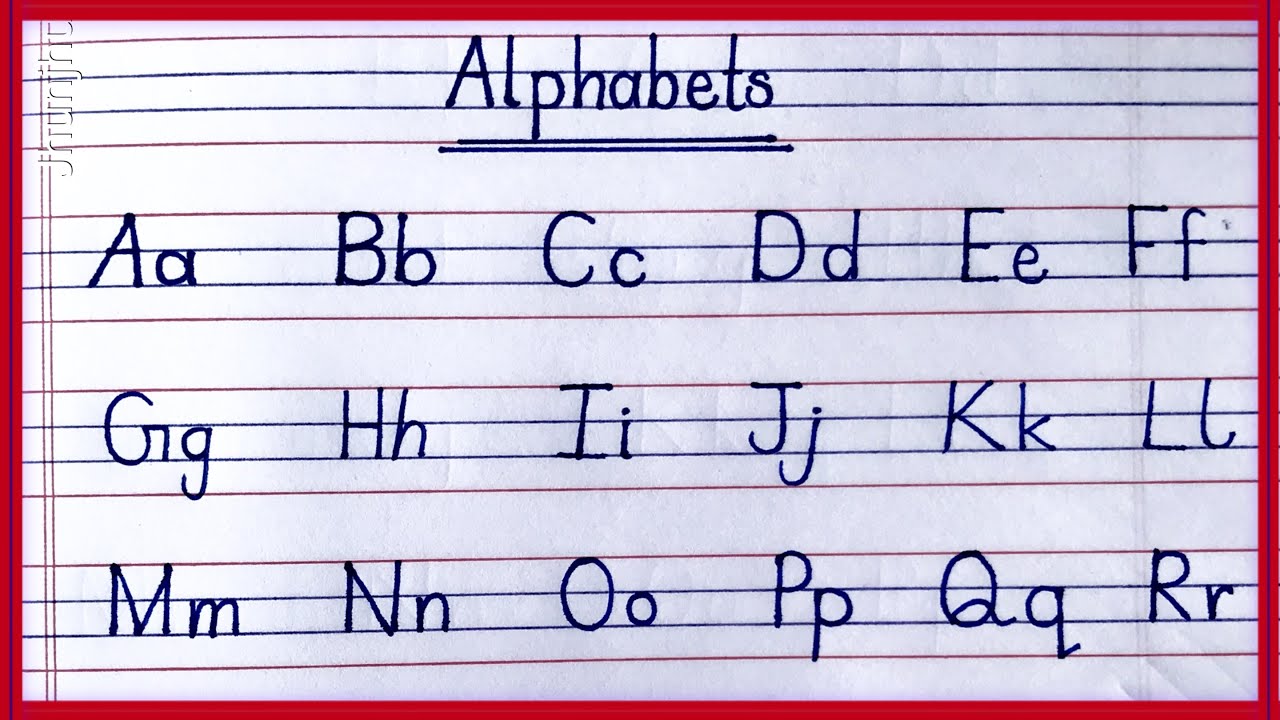 Alphabets
Aa Bb Cc Dd Ee Ff
Gg Hh Ii Jj Kk Ll
Mm Nn Oo Pp Qq Rr